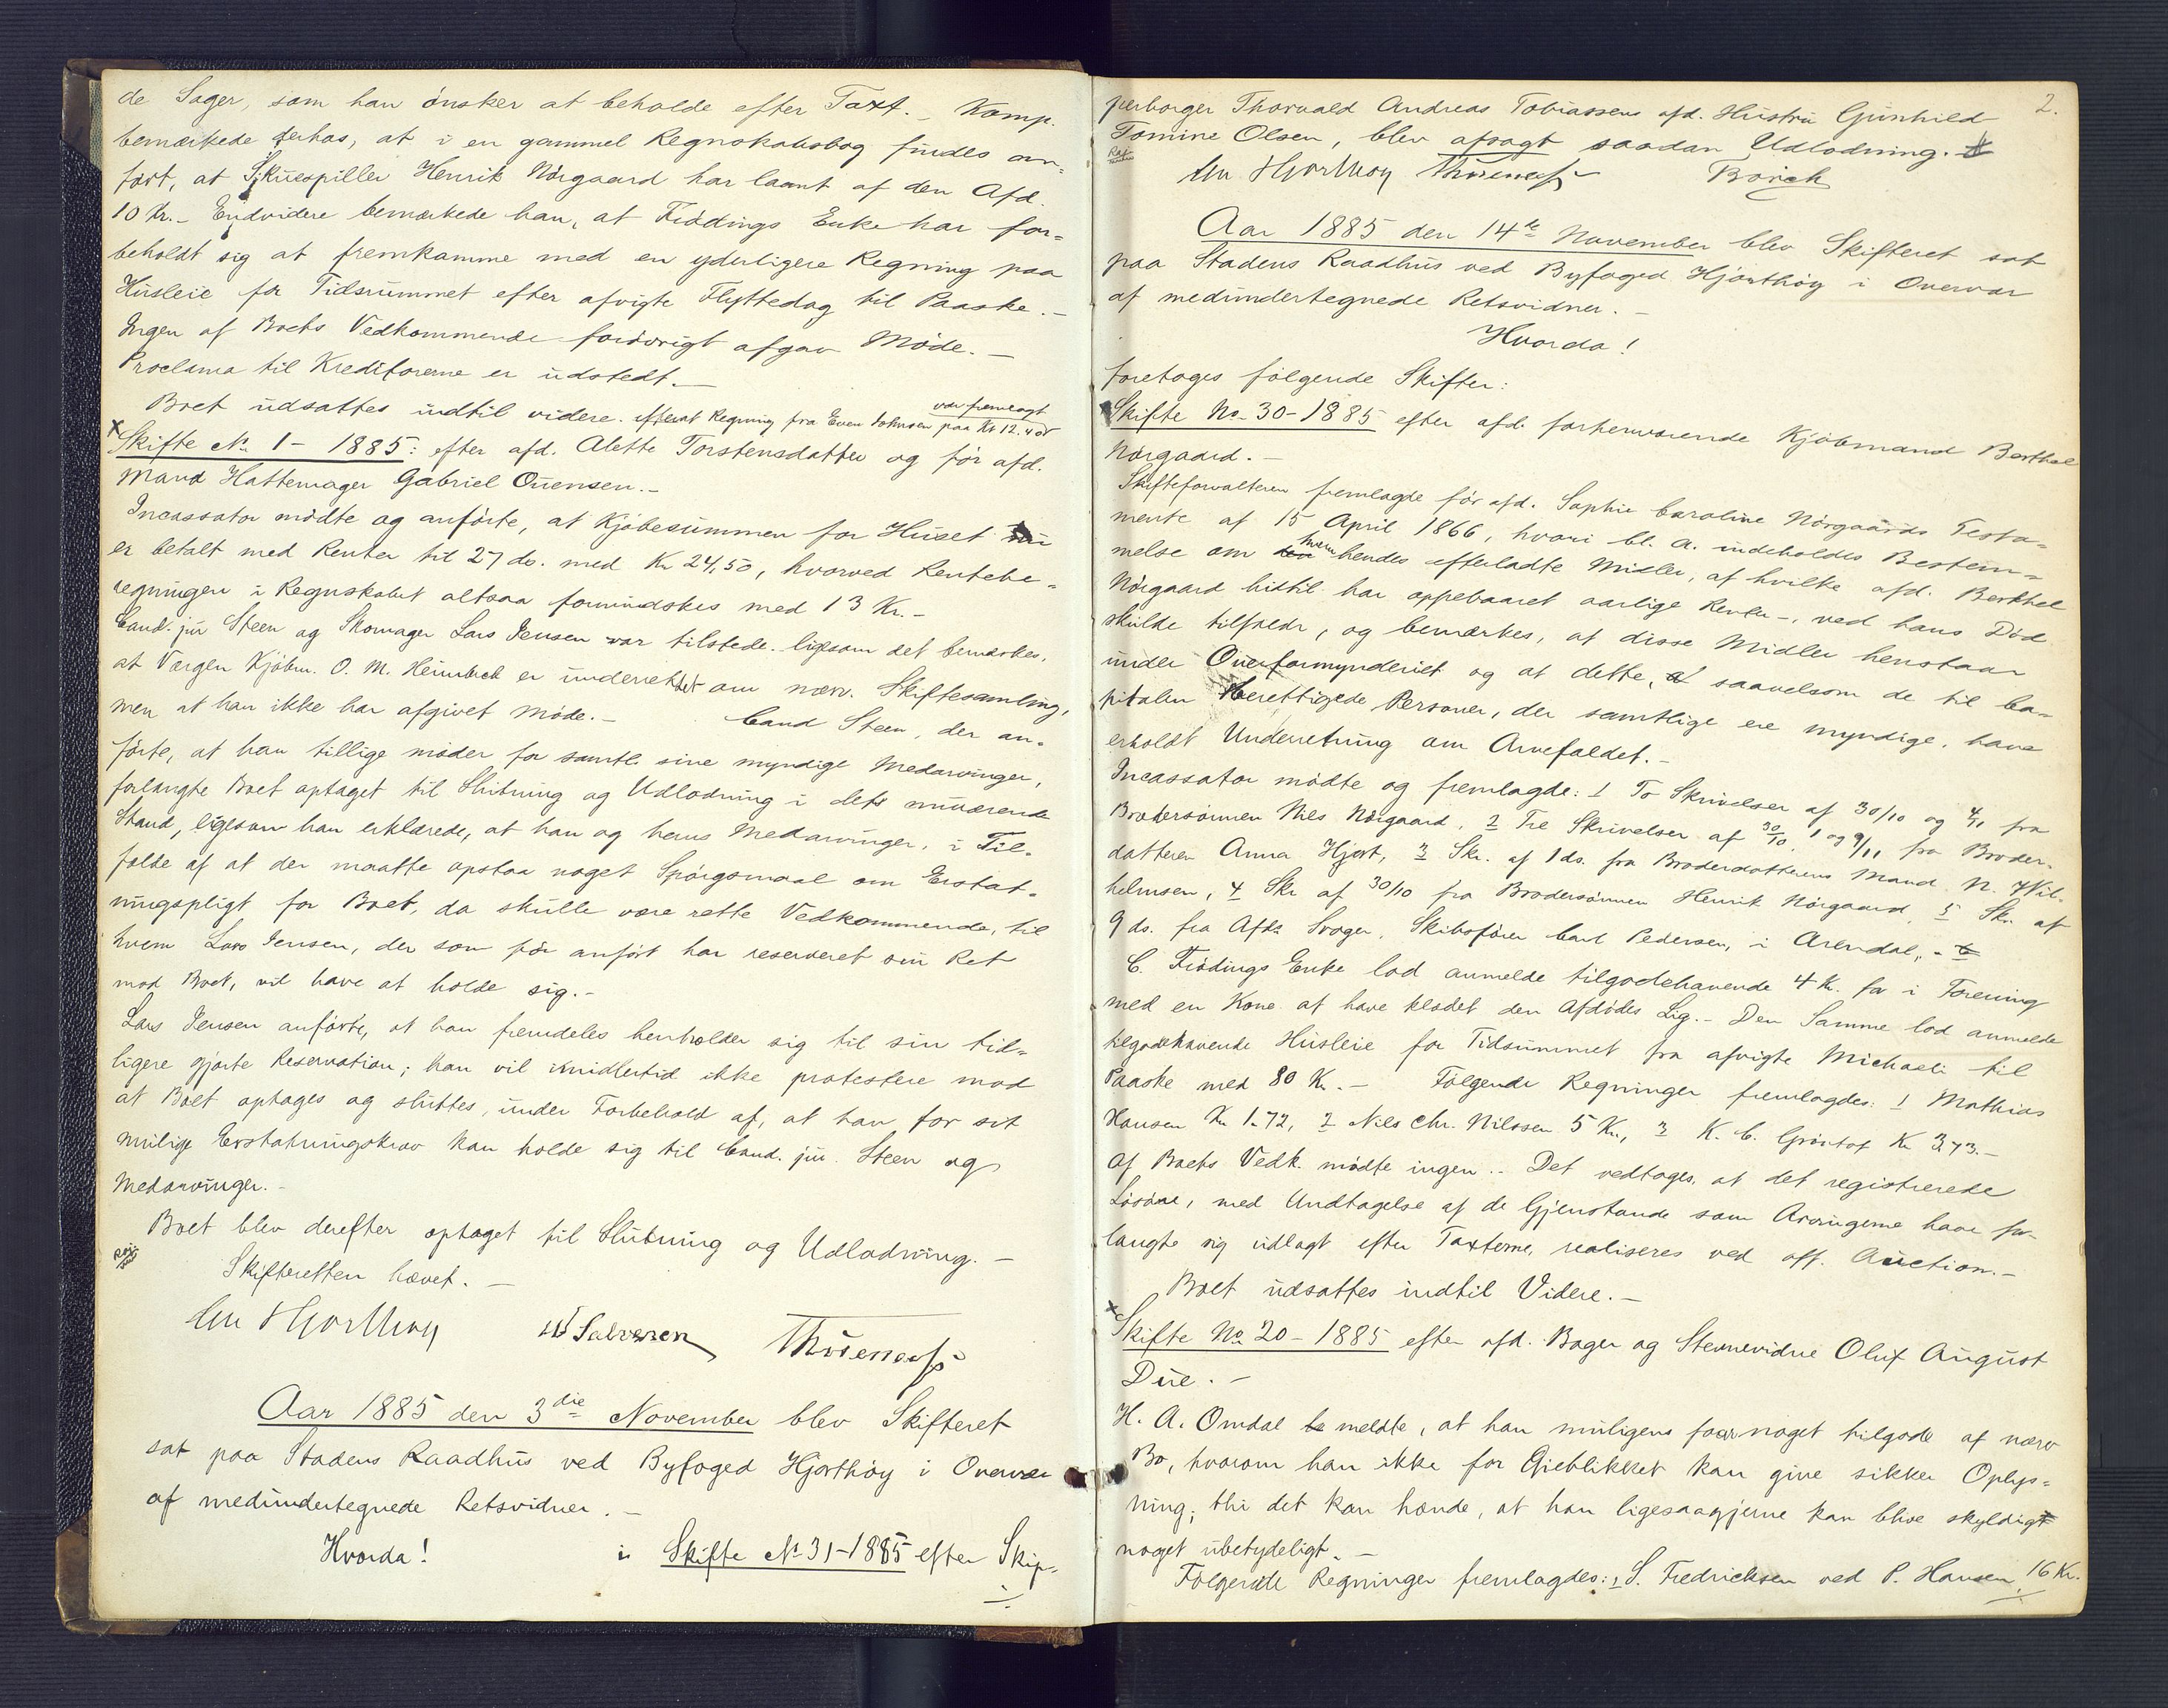 de Sager, som han ønsker at beholde efter Taxt. _ Komp.
bemærkede derhos, at i en gammel Regnskabsbog findes an-
ført, at Skuespiller Henrik Nørgaard har laant af den Afd.
10 Kr. _ Endvidere bemærkede han, at Fiødings Enke har for=
beholdt sig at fremkomme med en yderligere Regning paa
Husleie for Tidsrummet efter afvigte Flyttedag til Paaske._
Ingen af Boets Vedkommende forøvrigt afgav Møde. _
Proclama til Kreditorerne er udstedt._
var fremlagt
Boet udsattes indtil videre. efterat Regning fra Even Johnsen paa Kr 12.40
x Skifte No 1 - 1885: efter afd. Alette Torstensdatter og før afd.
Mand Hattemager Gabriel Ouensen._
Incassator mødte og anførte, at Kjøbesummen for Huset nu
er betalt med Renter til 27 ds. med Kr 24,50, hvorved Rentebe=
regningen i Regnskabet altsaa formindskes med 13 Kr._
Cand. jur Steen og Skomager Lars Jensen var tilstede. ligesom det bemærkes,
at Værgen Kjøbm. O. M. Heimbeck er underrettet om nærv. Skiftesamling,
men at han ikke har afgivet Møde._ Cand Steen, der an=
førte, at han tillige møder for samtl. sine myndige Medarvinger,
forlangte Boet optaget til Slutning og Udlodning i dets nuværende
Stand, ligesom han erklærede, at han og hans Medarvinger, i Til=
fælde af at der maatte opstaa noget Spørgsmaal om Erstat=
ningspligt for Boet, da skulle være rette Vedkommende, til
hvem Lars Jensen, der som før anført har reserveret sin Ret
mod Boet, vil have at holde sig._
Lars Jensen anførte, at han fremdeles henholder sig til sin tid=
ligere gjorte Reservation; han vil imidlertid ikke protestere mod
at Boet optages og sluttes, under Forbehold af, at han for sit
mulige Erstatningskrav kan holde sig til Cand. jur. Steen og
Medarvinger._
Boet blev derefter optaget til Slutning og Udlodning. _
Skifteretten hævet. _
Chr Hjorthøy Salvesen Thorenessø
Aar 1885 den 3die November blev Skifteret
sat paa Stadens Raadhus ved Byfoged Hjorthøy i Overvær
af medundertegnede Retsvidner. _
Hvorda! i Skifte No 31-1885 efter Skip-
2.
perborger Thorvald Andreas Tobiassens afd. Hustru Gunhild
Tomine Olsen, blev afsagt saadan Udlodning.
Chr Hjorthøy Thorenessø Borch
Aar 1885 den 14de November blev Skifteret sat
paa Stadens Raadhus ved Byfoged Hjorthøy i Overvær
af medundertegnede Retsvidner. _
Hvorda!
foretoges følgende Skifter:
Skifte No 30-1885 efter afd. forhenværende Kjøbmand Berthel
Nørgaard. _
Skifteforvalteren fremlagde før afd. Sophie Caroline Nørgaards Testa=
mente af 15 April 1866, hvori bl. a. indeholdes Bestem=
melse om hvem hendes efterladte Midler, af hvilke afd. Berthel
Nørgaard hidtil har oppebaaret aarlige Renter -, ved hans Død
skulde tilfalde, og bemærkes, at disse Midler henstaar
under Overformynderiet og at dette, saavelsom de til Ca=
pitalen berettigede Personer, der samtlige ere myndige, have
erholdt Underretning om Arvefaldet._
Incassator mødte og fremlagde: 1 To Skrivelser af 30/10 og 4/11 fra
Brodersønnen Nils Nørgaard, 2 Tre Skrivelser af 30/10, 1 og 9/11 fra Broder-
datteren Anna Hjort, 3 Skr. af 1 ds. fra Broderdatterens Mand N. Wil-
helmsen, 4 Skr af 30/10 fra Brodersønnen Henrik Nørgaard, 5 Skr. af
9 ds. fra Afds Svoger, Skibsfører Carl Pedersen, i Arendal, -
C. Fiødings Enke lod anmelde tilgodehavende 4 K. for i Forening
med en Kone at have klædet den Afdødes Lig._ Den Samme lod anmelde
tilgodehavende Husleie for Tidsrummet fra afvigte Michaeli til
Paaske med 80 Kr. _ Følgende Regninger fremlagdes: 1 Mathias
Hansen Kr 1.72, 2 Nils Chr. Nilssen 5 Kr., 3 K. C. Grøntof Kr 373._
Af Boets Vedk. mødte ingen._ Det vedtoges, at det registrerede
Løsøre, med Undtagelse af de Gjenstande som Arvingerne have for-
langte sig udlagt efter Taxterne, realiseres ved off. Auction._
Boet udsattes indtil Videre. _
x Skifte No 20 - 1885 efter afd. Bager og Stevnevidne Oluf August
Due. _
H. A. Omdal meldte, at han muligens faar noget tilgode af nærv
Bo, hvorom han ikke for Øieblikket kan give sikker Oplys=
ning; thi det kan hænde, at han ligesaagjerne kan blive skyldig
noget ubetydeligt. _
Følgende Regninger fremlagdes: 1 S. Fredricksen ved P. Hansen 16 Kr.